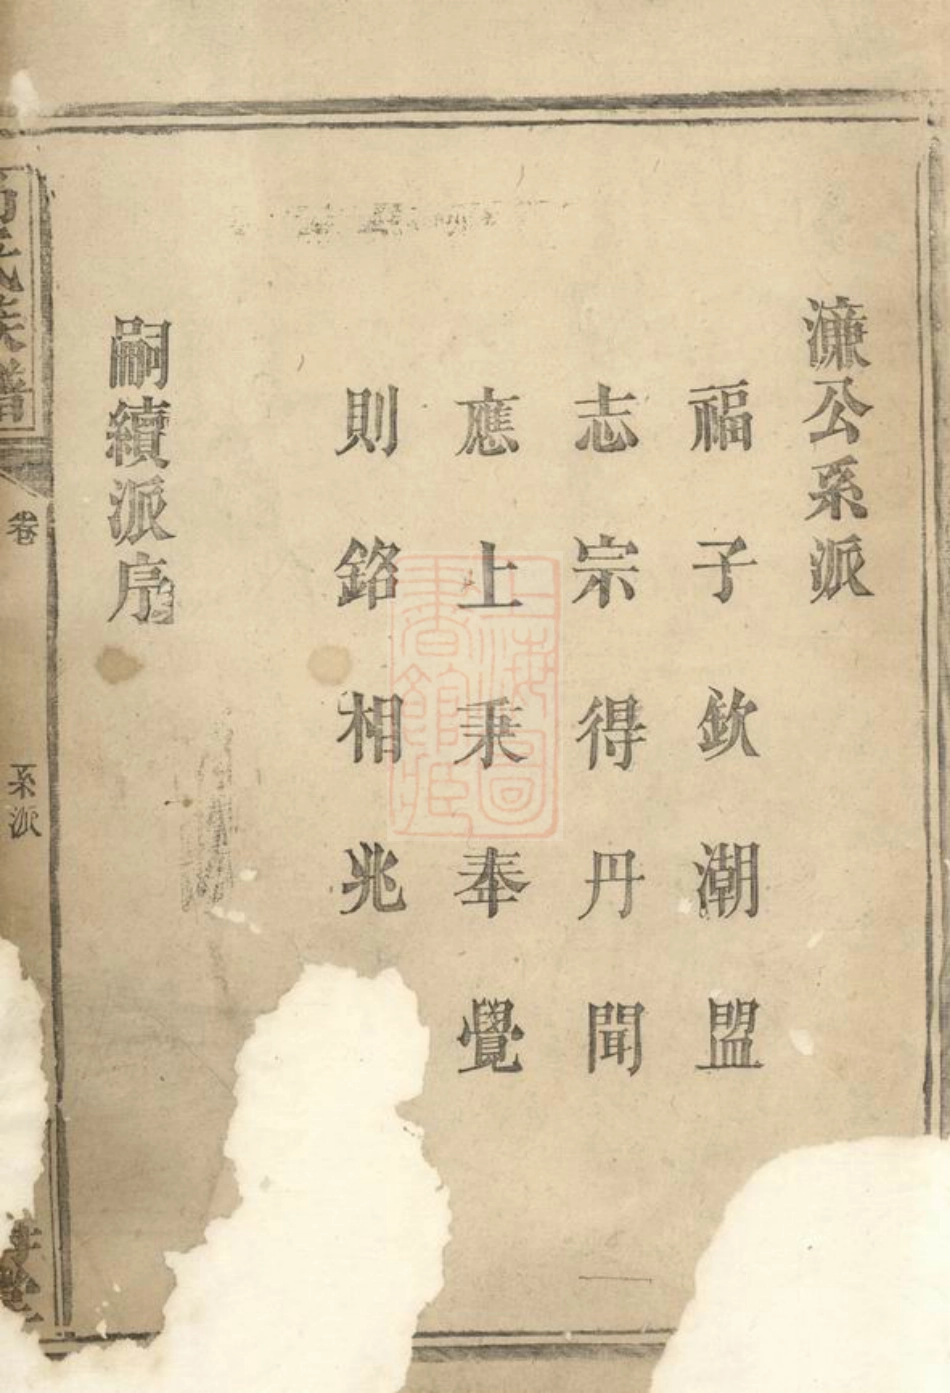 濂公系派
福子欽潮盟
志宗得丹聞
應上秉奉覺
則銘相兆
嗣續派序
氏族譜
卷
系派
上海圖書館藏